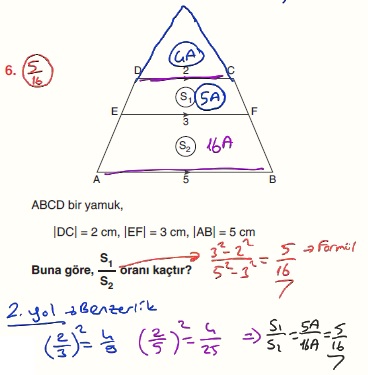 4A
D 2 C
6. 5/16
S₁ 5A
E 3 F
S₂ 16A
A 5 B
ABCD bir yamuk,
|DC| = 2 cm, |EF| = 3 cm, |AB| = 5 cm
Buna göre, S₁/S₂ oranı kaçtır?
(3² - 2²)/(5² - 3²) = 5/16 → Formül
2. yol → Benzerlik
(2/3)² = 4/9 (2/5)² = 4/25 ⇒ S₁/S₂ = 5A/16A = 5/16